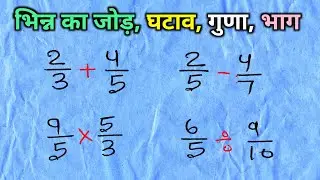 भिन्न का जोड़, घटाव, गुणा, भाग
2/3 + 4/5
2/5 - 4/7
9/5 × 5/3
6/5 ÷ 9/10